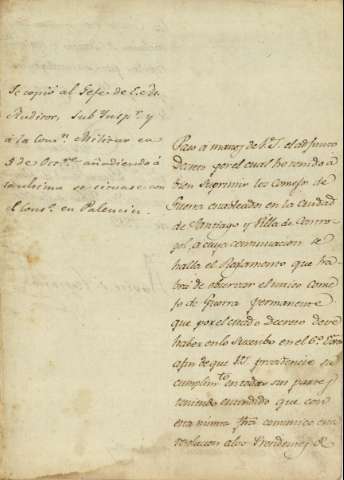 Se copió al Gefe de E. M.
Auditor, Sub Insp.r y
á la Com.n Militar en
9 de Oct.re añadiendo á
la ultima se circuase con
el Cons.o en Palencia.
Paso a manos de V.S. el adjunto
Decreto por el cual he tenido a
bien Suprimir los Consejos de
Guerra establecidos en la Ciudad
de Santiago y Villa de
a cuya continuacion se
halla el Reglamento que ha
brá de observar el unico Conse
jo de Guerra permanente
que por el citado decreto debe
haber en lo Sucesibo en el 6.º
afin de que V.S. providencie su
cumplim.to en todas sus partes y
teniendo entendido que con
esta misma fha comunico esta
resolucion a los Yntendentes de